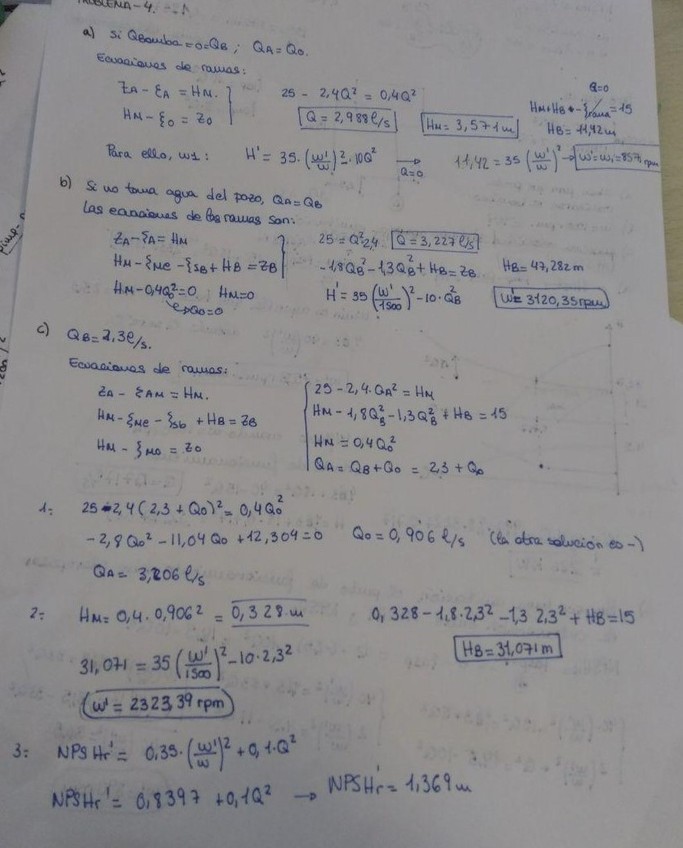 PROBLEMA-4.
a) Si QBomba=0=QB ; QA=Q0.
Ecuaciones de ramas:
ZA - ξA = HM.
HM - ξ0 = Z0
25 - 2,4Q² = 0,4Q²
Q = 2,988 l/s
HM = 3,571 m
Q=0
=15
HB = 11,42 m
Para ello, w1 : H' = 35·(w'/w)² - 10Q² → Q=0 11,42 = 35 (w'/w)² → w' = w1 = 857 rpm
b) Si no toma agua del pozo, QA=QB
Las ecuaciones de las ramas son:
ZA - ξA = HM
HM - ξMC - ξSB + HB = ZB
HM - 0,4Q0² = 0 HM=0
↳ Q0=0
25 = Q²·2,4 Q = 3,227 l/s
-1,8QB² - 1,3QB² + HB = ZB HB = 47,282 m
H' = 35 (w'/1500)² - 10·QB² w' = 3120,35 rpm
c) QB = 2,3 l/s.
Ecuaciones de ramas:
ZA - ξAM = HM.
HM - ξMC - ξSb + HB = ZB
HM - ξM0 = Z0
25 - 2,4·QA² = HM
HM - 1,8QB² - 1,3QB² + HB = 15
HM = 0,4Q0²
QA = QB + Q0 = 2,3 + Q0
1: 25 - 2,4 (2,3 + Q0)² = 0,4Q0²
-2,8Q0² - 11,04 Q0 + 12,304 = 0 Q0 = 0,906 l/s (la otra solución es -)
QA = 3,206 l/s
2: HM = 0,4·0,906² = 0,328 m 0,328 - 1,8·2,3² - 1,3 2,3² + HB = 15
HB = 31,071 m
31,071 = 35 (w'/1500)² - 10·2,3²
w' = 2323,39 rpm
3: NPSHr' = 0,35·(w'/w)² + 0,1·Q²
NPSHr' = 0,8397 + 0,1Q² → NPSHr' = 1,369 m